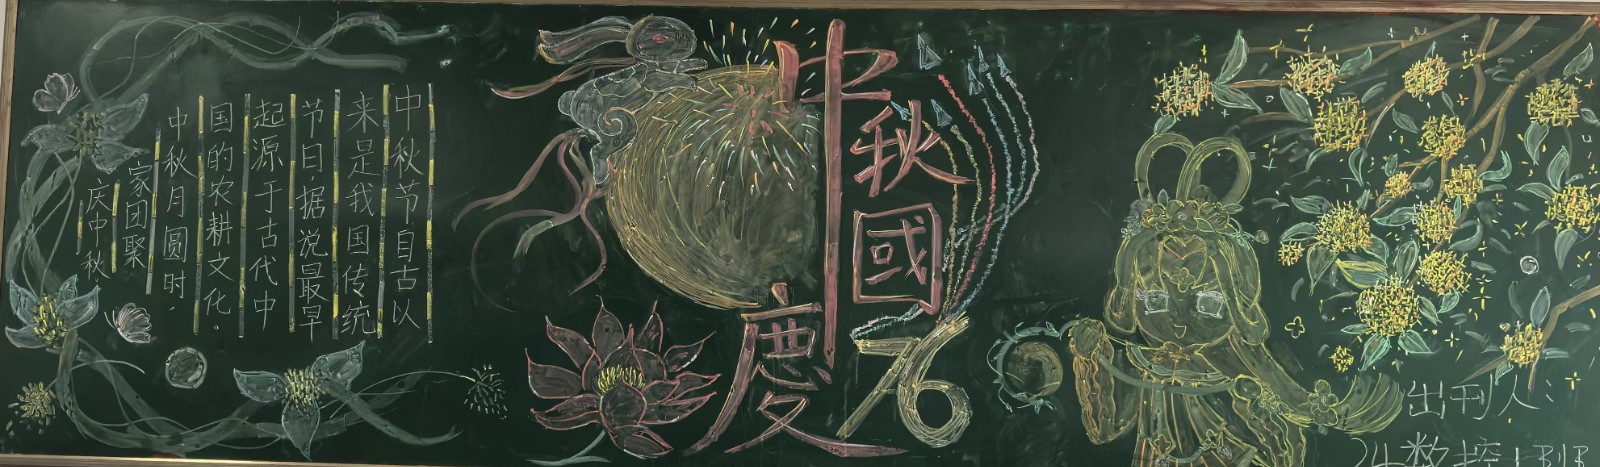 中秋节自古以
来是我国传统
节日,据说最早
起源于古代中
国的农耕文化。
中秋月圆时,
家团聚
庆中秋。
中秋
國慶
76
出刊人:
数控1